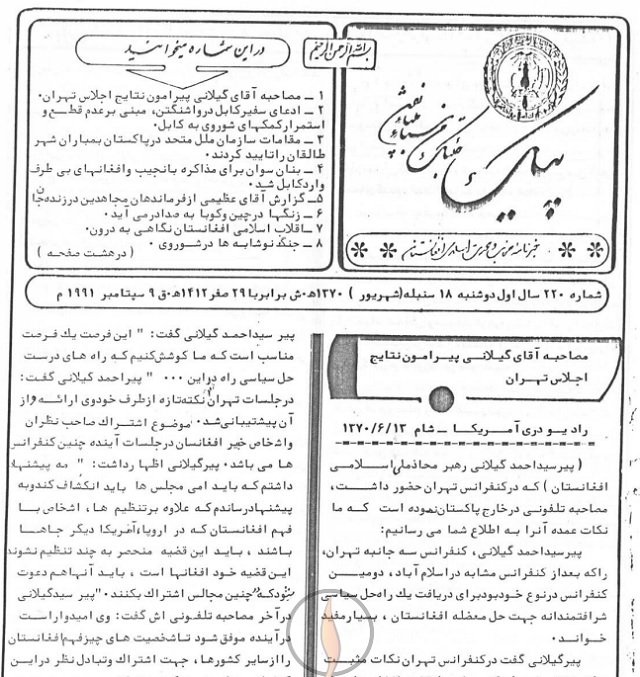 بسم الله الرحمن الرحیم
در این شماره میخوانید
۱ ــ مصاحبه آقای گیلانی پیرامون نتایج اجلاس تهران.
۲ ــ ادعای سفیر کابل در واشنگتن، مبنی بر عدم قطع و
استمرار کمکهای شوروی به کابل.
۳ ــ مقامات سازمان ملل متحد در پاکستان بمباران شهر
طالقان را تایید کردند.
۴ ــ بنان سوان برای مذاکره با نجیب و افغانهای بی طرف
وارد کابل شد.
۵ــ گزارش آقای عظیمی از فرماندهان مجاهدین در زنده‌جان
۶ ــ زنگها در چین و کوبا به صدا در می آید.
۷ ــ انقلاب اسلامی افغانستان نگاهی به درون.
۸ ــ جنگ نوشابه ها در شوروی.
( در هشت صفحه )
پیام
خبرنامه حزب حرکت اسلامی افغانستان
شماره ۲۲۰ سال اول دوشنبه ۱۸ سنبله(شهریور ) ۱۳۷۰ه.ش برابر با ۲۹ صفر ۱۴۱۲ه.ق ۹ سپتامبر ۱۹۹۱ م
مصاحبه آقای گیلانی پیرامون نتایج
اجلاس تهران
رادیو دری آمریکا ــ شام ۱۳۷۰/۶/۱۳
( پیر سید احمد گیلانی رهبر محاذ ملی اسلامی
افغانستان ) که در کنفرانس تهران حضور داشت،
مصاحبه تلفونی در خارج پاکستان نموده است که ما
نکات عمده آنرا به اطلاع شما می رسانیم:
پیر سید احمد گیلانی، کنفرانس سه جانبه تهران،
را که بعد از کنفرانس مشابه در اسلام آباد، دومین
کنفرانس در نوع خود بود برای دریافت یك راه حل سیاسی
شرافتمندانه جهت حل معضله افغانستان ، بسیار مفید
خواند.
پیر گیلانی گفت در کنفرانس تهران نکات مثبت
پیر سید احمد گیلانی گفت: " این فرصت یك فرصت
مناسب است که ما کوشش کنیم که راه های درست
حل سیاسی راه در این ... " پیر احمد گیلانی گفت:
در جلسات تهران نکته تازه از طرف خودوی ارائه و از
آن پیشتیبانی شد. موضوع اشتراك صاحب نظران
و اشخاص خیر افغانستان در جلسات آینده چنین کنفرانس
ها می باشد. پیر گیلانی اظهار داشت: " مه پیشنهاد
داشتم که باید امی مجلس ها باید انکشاف کند و به
پیشنهاد رساندم که علاوه بر تنظیم ها ، اشخاص با
فهم افغانستان که در اروپا، آمریکا دیگر جاها
باشند ، باید این قضیه منحصر به چند تنظیم نشوند
این قضیه خود افغانها است ، باید آنها هم دعوت
شود که چنین مجالس اشتراك بکنند. "پیر سید گیلانی
در آخر مصاحبه تلفونی اش گفت: وی امیدوار است
در آینده موفق شود تا شخصیت های چیز فهم افغانستان
را از سایر کشورها ، جهت اشتراك و تبادل نظر در این